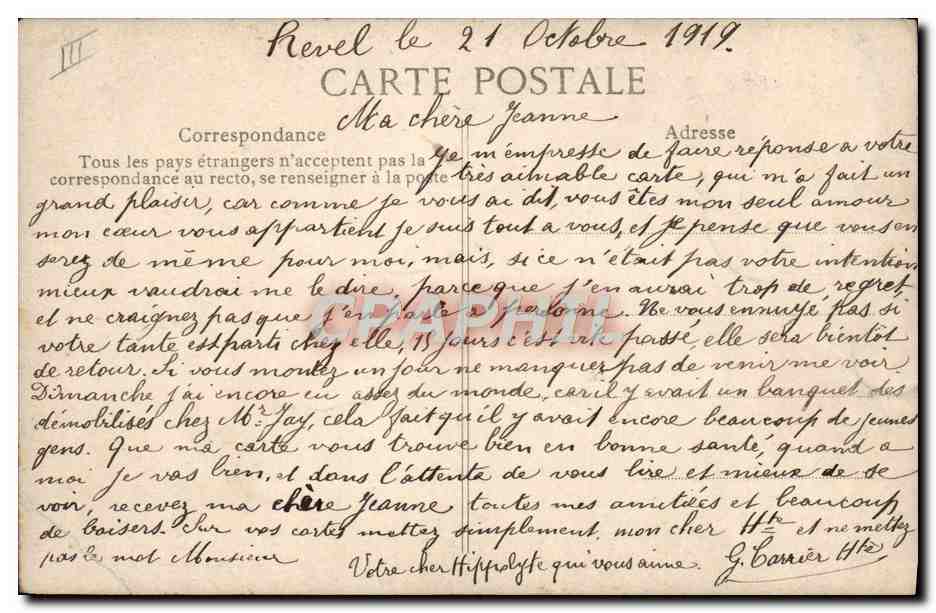 III
Revel le 21 Octobre 1919.
CARTE POSTALE
Ma chère Jeanne
Correspondance
Adresse
Tous les pays étrangers n'acceptent pas la
correspondance au recto, se renseigner à la poste
Je m'empresse de faire réponse a votre
très aimable carte, qui m'a fait un
grand plaisir, car comme je vous ai dit, vous êtes mon seul amour
mon cœur vous appartient je suis tout a vous, et je pense que vous en
serez de même pour moi, mais, si ce n'était pas votre intention
mieux vaudrai me le dire, parce que j'en aurai trop de regret
et ne craignez pas que j'en parle a personne. Ne vous ennuyé pas si
votre tante est parti chez elle, 15 jours c'est vite passé, elle sera bientôt
de retour. Si vous montez un jour ne manquez pas de venir me voir.
Dimanche j'ai encore eu assez du monde, car il y avait un banquet des
démobilisés chez Mr. Jay, cela fait qu'il y avait encore beaucoup de jeunes
gens. Que ma carte vous trouve bien en bonne santé, quand a
moi je vas bien, et dans l'attente de vous lire et mieux de se
voir, recevez ma chère Jeanne toutes mes amitiées et beaucoup
de baisers. Sur vos cartes mettez simplement, mon cher Hte et ne mettez
pas le mot Monsieur
Votre cher Hippolyte qui vous aime. G. Carrier Hte
CPAPHIL